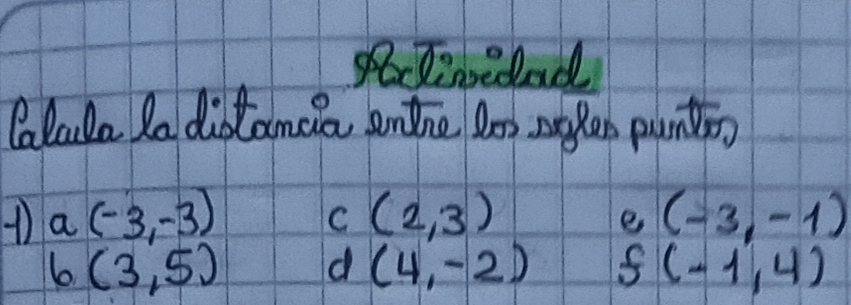 Actividad
Calcula la distancia entre los sigtes puntos
1) a (-3,-3) c (2,3) e (-3,-1)
b (3,5) d (4,-2) f (-1,4)